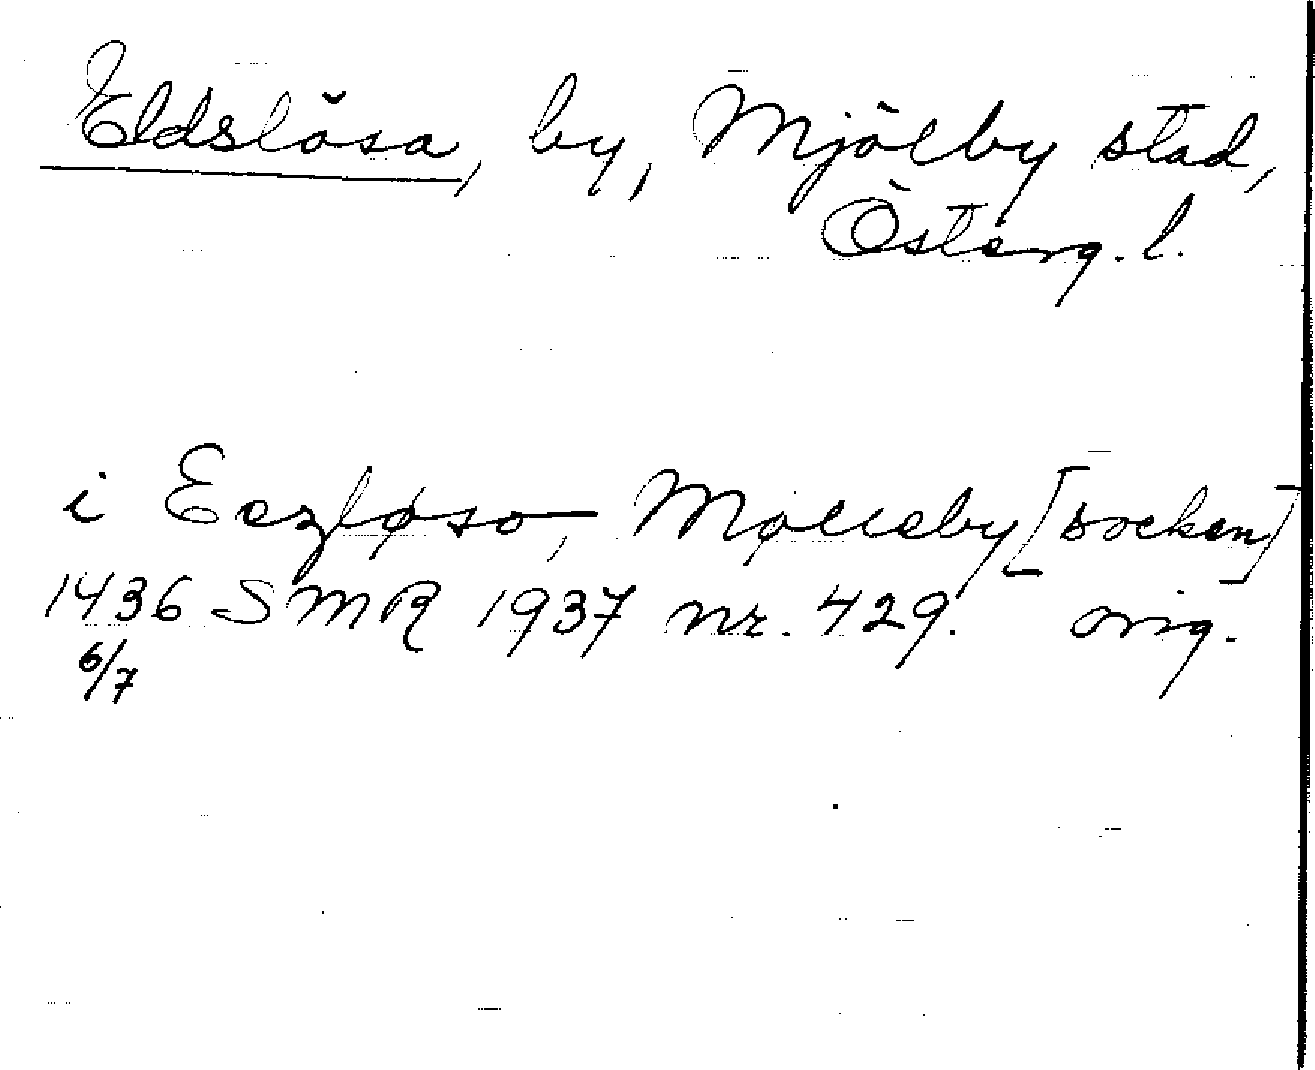 Eldslösa, by, Mjölby stad,
Österg. l.
i Eezløso, Mølleby [socken]
1436 SMR 1937 nr. 429. orig.
6/7